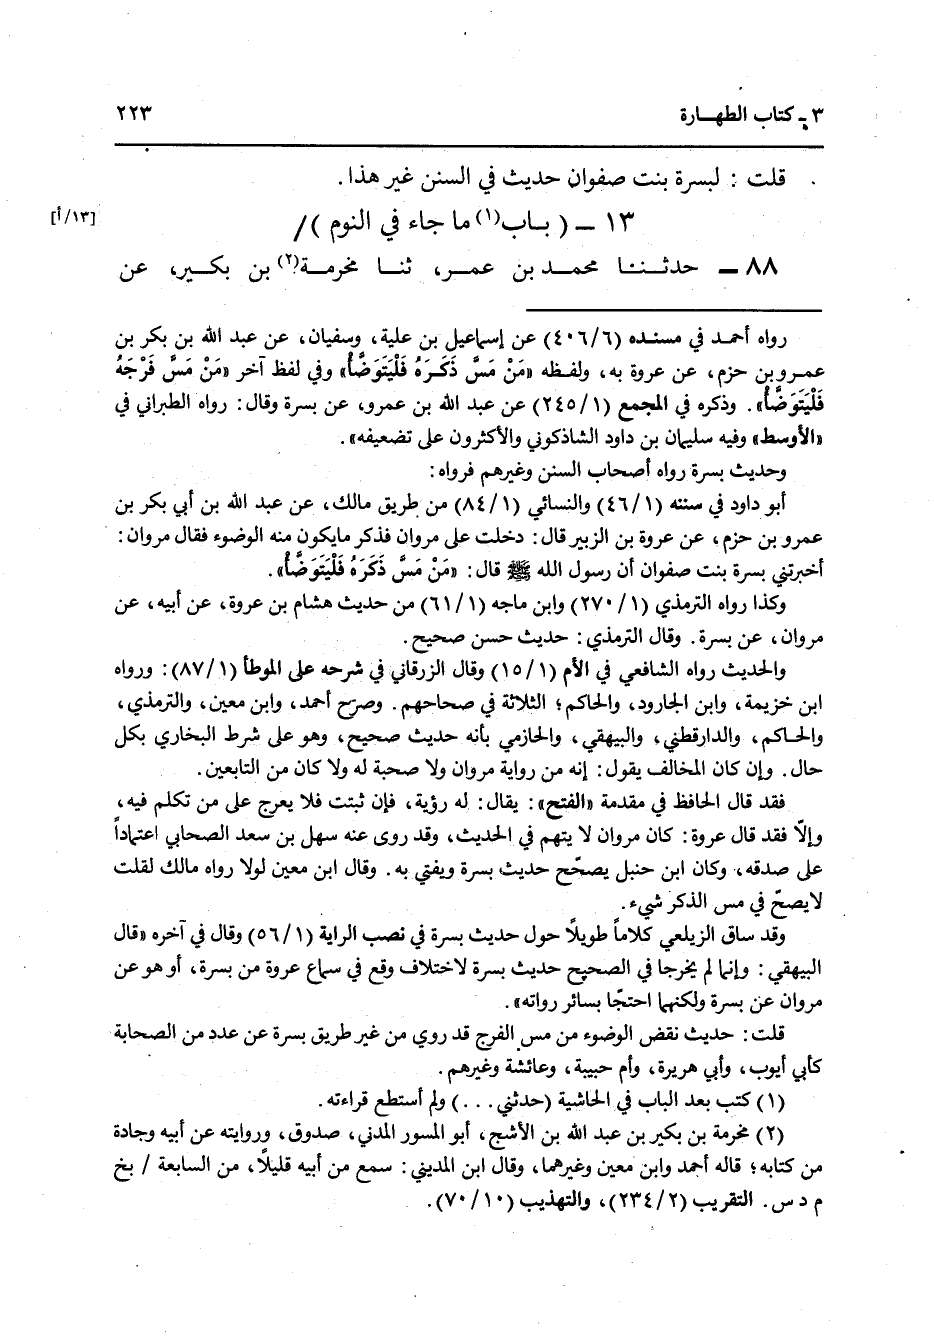 ٣ - كتاب الطهارة ٢٢٣
قلت : لبسرة بنت صفوان حديث في السنن غير هذا.
١٣ - ( باب(١) ما جاء في النوم )/ [١٣/أ]
٨٨ - حدثنا محمد بن عمر، ثنا مخرمة(٢) بن بكير، عن
رواه أحمد في مسنده (٤٠٦/٦) عن إسماعيل بن علية، وسفيان، عن عبد الله بن بكر بن
عمرو بن حزم، عن عروة به، ولفظه «مَنْ مَسَّ ذَكَرَهُ فَلْيَتَوَضَّأْ» وفي لفظ آخر «مَنْ مَسَّ فَرْجَهُ
فَلْيَتَوَضَّأْ». وذكره في المجمع (٢٤٥/١) عن عبد الله بن عمرو، عن بسرة وقال: رواه الطبراني في
«الأوسط» وفيه سليمان بن داود الشاذكوني والأكثرون على تضعيفه».
وحديث بسرة رواه أصحاب السنن وغيرهم فرواه:
أبو داود في سننه (٤٦/١) والنسائي (٨٤/١) من طريق مالك، عن عبد الله بن أبي بكر بن
عمرو بن حزم، عن عروة بن الزبير قال: دخلت على مروان فذكر مايكون منه الوضوء فقال مروان:
أخبرتني بسرة بنت صفوان أن رسول الله ﷺ قال: «مَنْ مَسَّ ذَكَرَهُ فَلْيَتَوَضَّأْ».
وكذا رواه الترمذي (٢٧٠/١) وابن ماجه (٦١/١) من حديث هشام بن عروة، عن أبيه، عن
مروان، عن بسرة. وقال الترمذي: حديث حسن صحيح.
والحديث رواه الشافعي في الأم (١٥/١) وقال الزرقاني في شرحه على الموطأ (٨٧/١): ورواه
ابن خزيمة، وابن الجارود، والحاكم؛ الثلاثة في صحاحهم. وصرح أحمد، وابن معين، والترمذي،
والحاكم، والدارقطني، والبيهقي، والحازمي بأنه حديث صحيح، وهو على شرط البخاري بكل
حال. وإن كان المخالف يقول: إنه من رواية مروان ولا صحبة له ولا كان من التابعين.
فقد قال الحافظ في مقدمة «الفتح»: يقال: له رؤية، فإن ثبتت فلا يعرج على من تكلم فيه،
وإلّا فقد قال عروة: كان مروان لا يتهم في الحديث، وقد روى عنه سهل بن سعد الصحابي اعتماداً
على صدقه، وكان ابن حنبل يصحّح حديث بسرة ويفتي به. وقال ابن معين لولا رواه مالك لقلت
لايصحّ في مس الذكر شيء.
وقد ساق الزيلعي كلاماً طويلًا حول حديث بسرة في نصب الراية (٥٦/١) وقال في آخره «قال
البيهقي: وإنما لم يخرجا في الصحيح حديث بسرة لاختلاف وقع في سماع عروة من بسرة، أو هو عن
مروان عن بسرة ولكنهما احتجّا بسائر رواته».
قلت: حديث نقض الوضوء من مس الفرج قد روي من غير طريق بسرة عن عدد من الصحابة
كأبي أيوب، وأبي هريرة، وأم حبيبة، وعائشة وغيرهم.
(١) كتب بعد الباب في الحاشية (حدثني...) ولم أستطع قراءته.
(٢) مخرمة بن بكير بن عبد الله بن الأشج، أبو المسور المدني، صدوق، وروايته عن أبيه وجادة
من كتابه؛ قاله أحمد وابن معين وغيرهما، وقال ابن المديني: سمع من أبيه قليلًا، من السابعة / بخ
م د س. التقريب (٢٣٤/٢)، والتهذيب (٧٠/١٠).